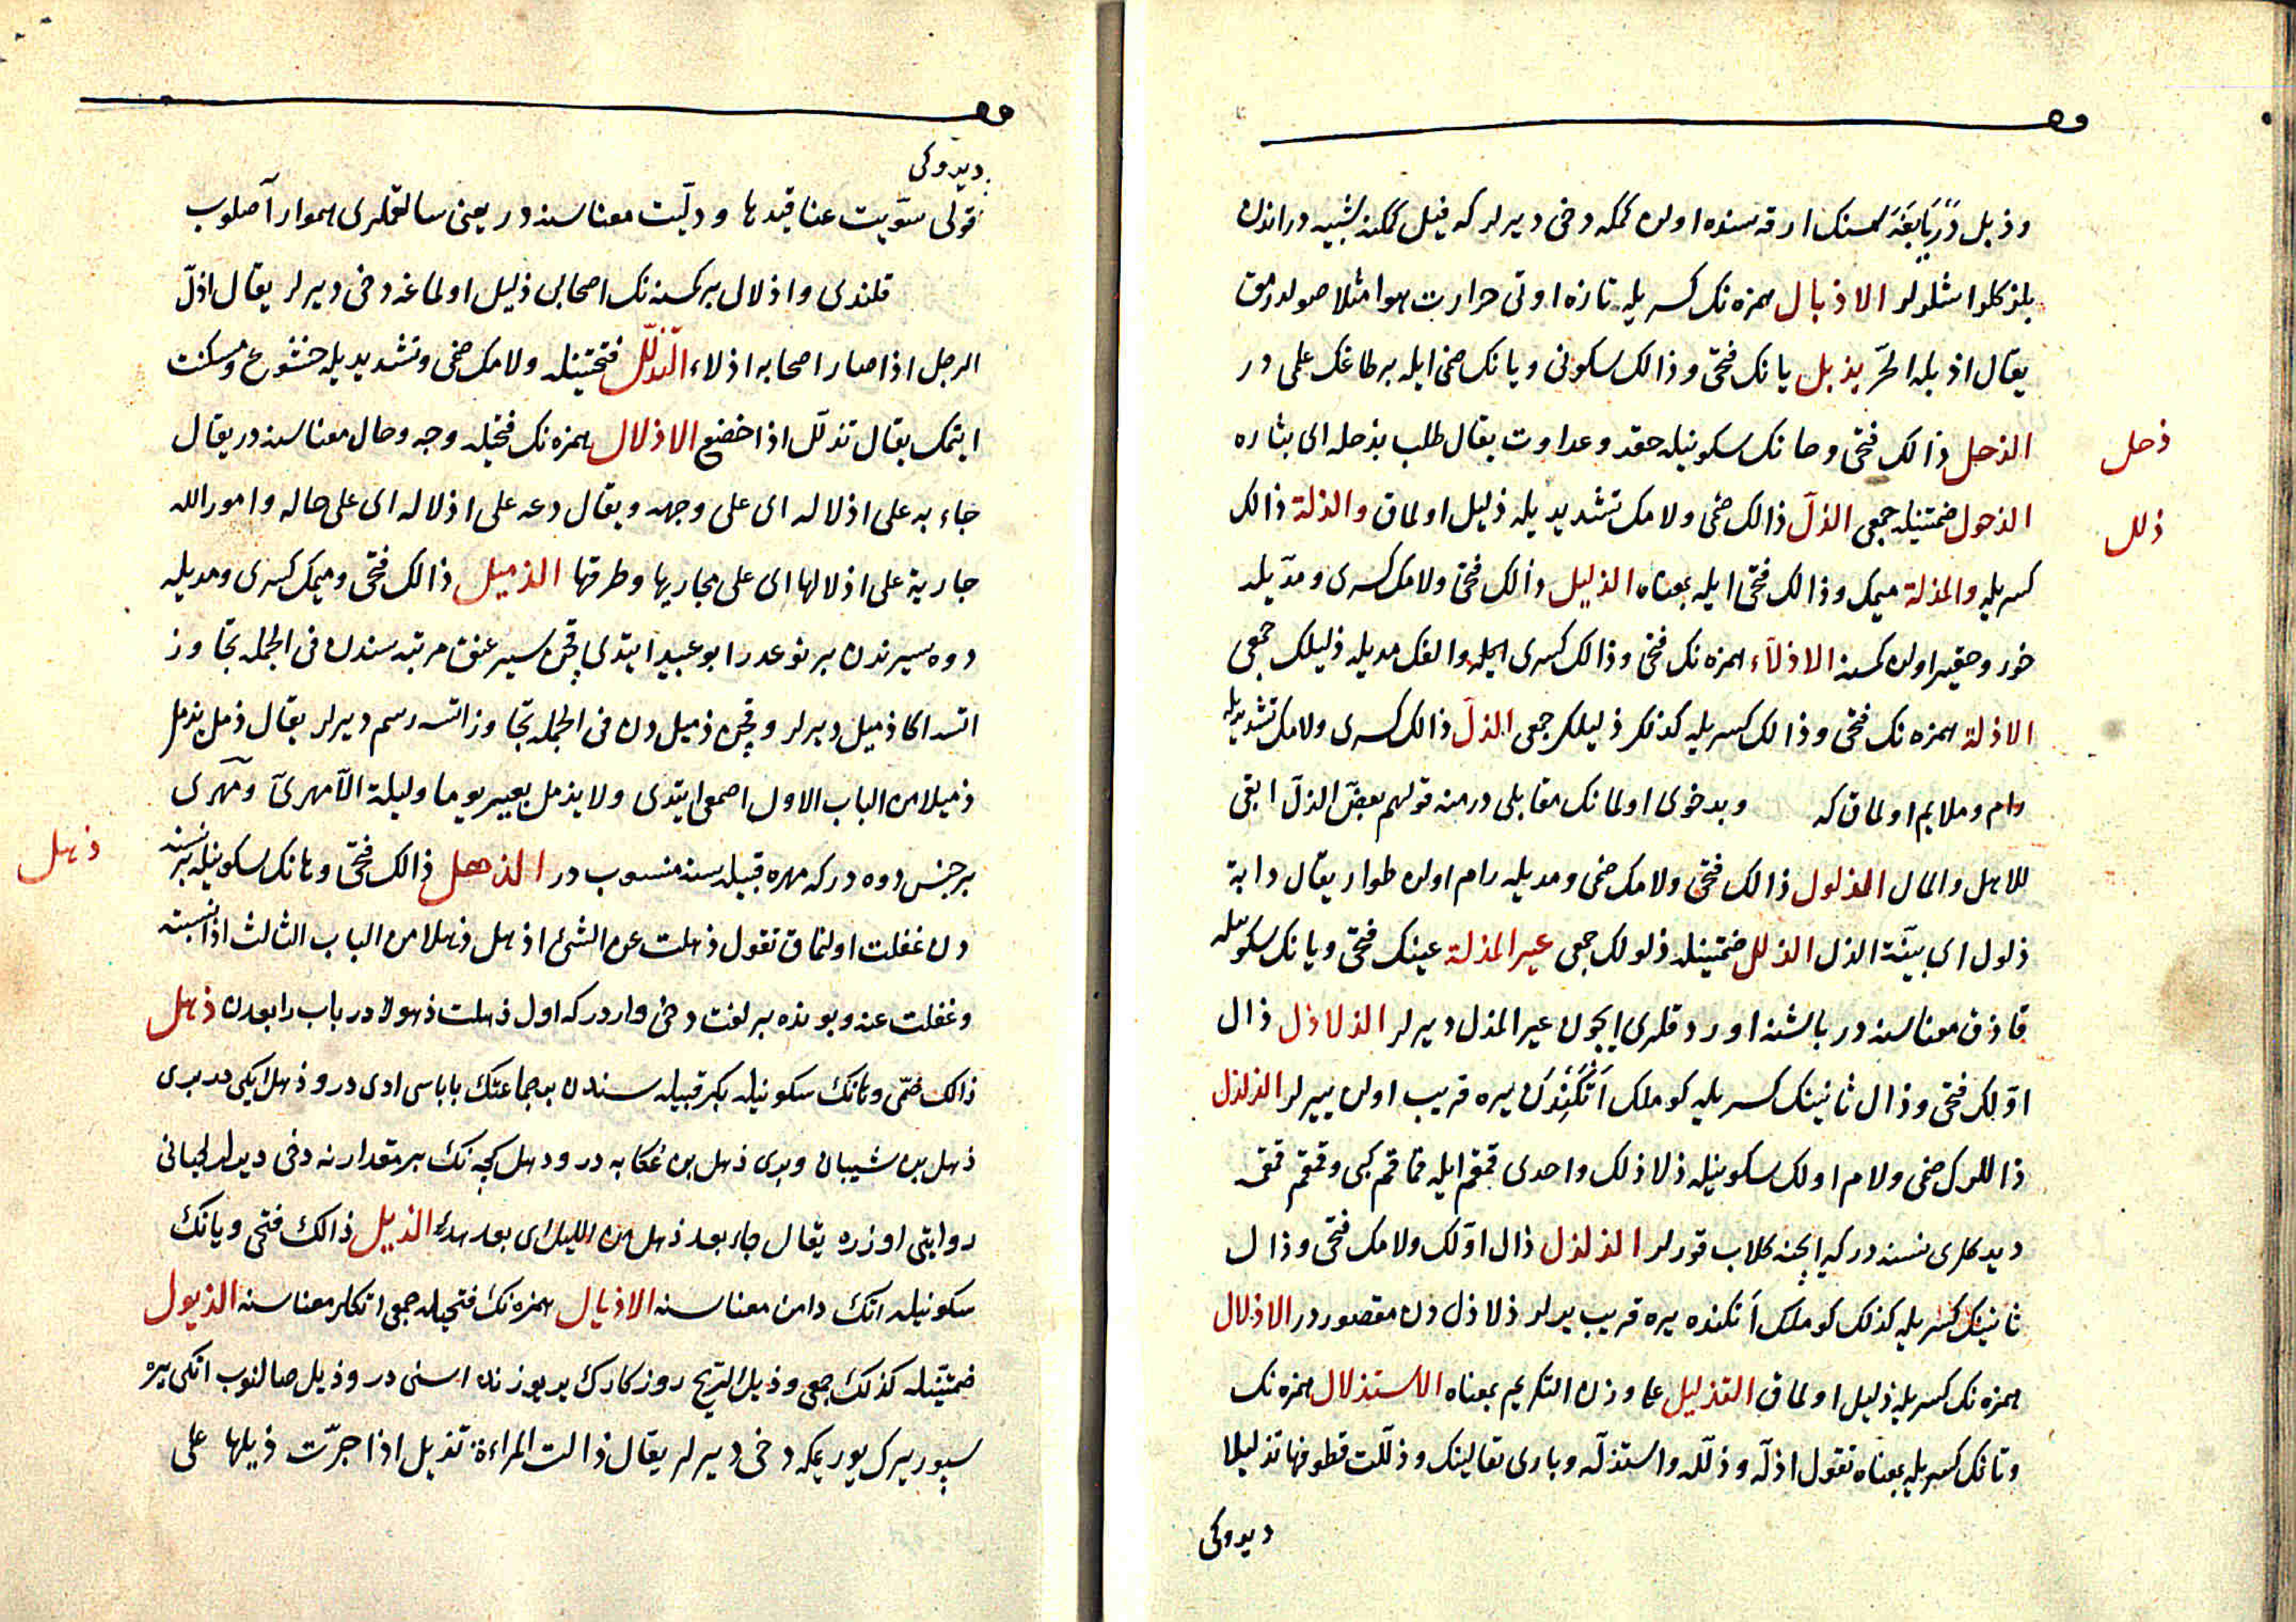 وذبل دریا بغه سنك ارقه سنده اولن كمكه دخی دیرلر كه فیل كمكنه شبیه در اندن
بلزكلر اشلرلر الاذبال همزه نك كسریله تازه اوتی حرارت هوا مثلا صولدرمق
یقال اذبله الحرّ یذبل یانك فتحی وذالك سكونی وبانك ضمی ایله بر طاغك علمی در
ذحل
الذحل ذالك فتحی وحانك سكونیله حقد وعداوت یقال طلب بذحله ای بثاره
ذلل
الذحول ضمتینله جمعی الذلّ ذالك ضمی ولامك تشدیدیله ذلیل اولماق والذلة ذالك
كسریله والمذلة میمك وذالك فتحی ایله بمعناه الذلیل ذالك فتحی ولامك كسری ومدّیله
خور وحقیر اولن كمسنه الاذلّاء همزه نك فتحی وذالك كسری ایله والفك مدیله ذلیلك جمعی
الاذلة همزه نك فتحی وذالك كسریله كذلك ذلیلك جمعی الذلّ ذالك كسری ولامك تشدیدیله
رام وملایم اولماق كه وبدخوی اولمانك مقابلی در منه قولهم بعض الذلّ ابقی
للاهل والمال الذلول ذالك فتحی ولامك ضمی ومدیله رام اولن طوار یقال دابة
ذلول ای بیّنة الذل الذلل ضمتینله ذلولك جمعی عیر المذلة عینك فتحی ویانك سكونیله
قازق معناسنه در باشنه اوردقلری ایچون عیر المذل دیرلر الذلاذل ذال
اوّلك فتحی وذال ثانینك كسریله كوملك اتكندن یره قریب اولن ییرلر الذلذل
ذاللرك ضمی ولام اولك سكونیله ذلاذلك واحدی قمقم ایله قماقم كبی وقمقم قمقمه
دیدكلری نسنه در كه ایچنه كلاب قورلر الذلذل ذال اوّلك ولامك فتحی وذال
ثانینك كسریله كذلك كوملك اتكنده یره قریب یرلر ذلاذل دن مقصوردر الاذلال
همزه نك كسریله ذلیل اولماق التذلیل علی وزن التكریم بمعناه الاستذلال همزه نك
وتانك كسریله بمعناه تقول اذلّه وذلّله واستذلّه وباری تعالینك وذلّلت قطوفها تذلیلا
دیدوكی
دیدوكی
قولی سوّیت عناقیدها ودلّیت معناسنه در یعنی سالقملری هموار آصلوب
قلندی واذلال بر كمسنه نك اصحابی ذلیل اولماغه دخی دیرلر یقال اذلّ
الرجل اذا صار اصحابه اذلاء التذلّل فتحتینله ولامك ضمی وتشدیدیله خشوع ومسكنت
ایتمك یقال تذلّل اذا خضع الاذلال همزه نك فتحیله وجه وحال معناسنه در یقال
جاء به علی اذلاله ای علی وجهه ویقال دعه علی اذلاله ای علی حاله وامور الله
جاریة علی اذلالها ای علی مجاریها وطرقها الذمیل ذالك فتحی ومیمك كسری ومدیله
دوه سیرندن بر نوعدر ابو عبید ایتدی قچن سیر عنق مرتبه سندن فی الجمله تجاوز
اتسه اكا ذمیل دیرلر وقچن ذمیل دن فی الجمله تجاوز اتسه رسم دیرلر یقال ذمل یذمل
ذمیلا من الباب الاول اصمعی ایتدی ولا یذمل بعیر یوما ولیلة الّا مهریّ ومهری
بر جنس دوه در كه مهره قبیله سنه منسوب در الذهل ذالك فتحی وهانك سكونیله بر نسنه
ذهل
دن غفلت اولنماق تقول ذهلت عن الشئ اذهل ذهلا من الباب الثالث اذا نسیته
وغفلت عنه وبونده بر لغت دخی واردر كه اول ذهلت ذهولا در باب رابعدن ذهل
ذالك ضمّی وهانك سكونیله بكر قبیله سندن بر جماعتك باباسی ادی در وذهل ایكی در بری
ذهل بن شیبان وبری ذهل بن ثعلبه در وذهل كجه نك بر مقدارنه دخی دیرلر لحیانی
روایتی اوزره یقال جاء بعد ذهل من اللیل ای بعد هدء الذیل ذالك فتحی ویانك
سكونیله اتك دامن معناسنه الاذیال همزه نك فتحیله جمعی اتكلر معناسنه الذیول
ضمتینله كذلك جمعی وذیل الریح روزكارك یر یوزنده اسنی در وذیل صالنوب اتكی یره
سپوریرك یوریمكه دخی دیرلر یقال ذالت المراءة تذیل اذا جرّت ذیلها علی